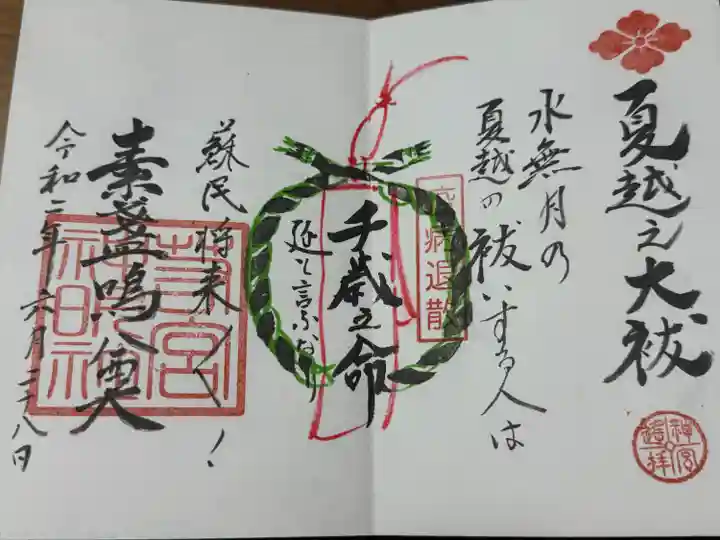 夏越之大祓
神宮遙拝
水無月の
夏越の祓いする人は
疫病退散
千歳之命
延と言ふなり
蘇民将来〳〵！
素盞嗚尊
宮
神明社
令和二年六月二十八日